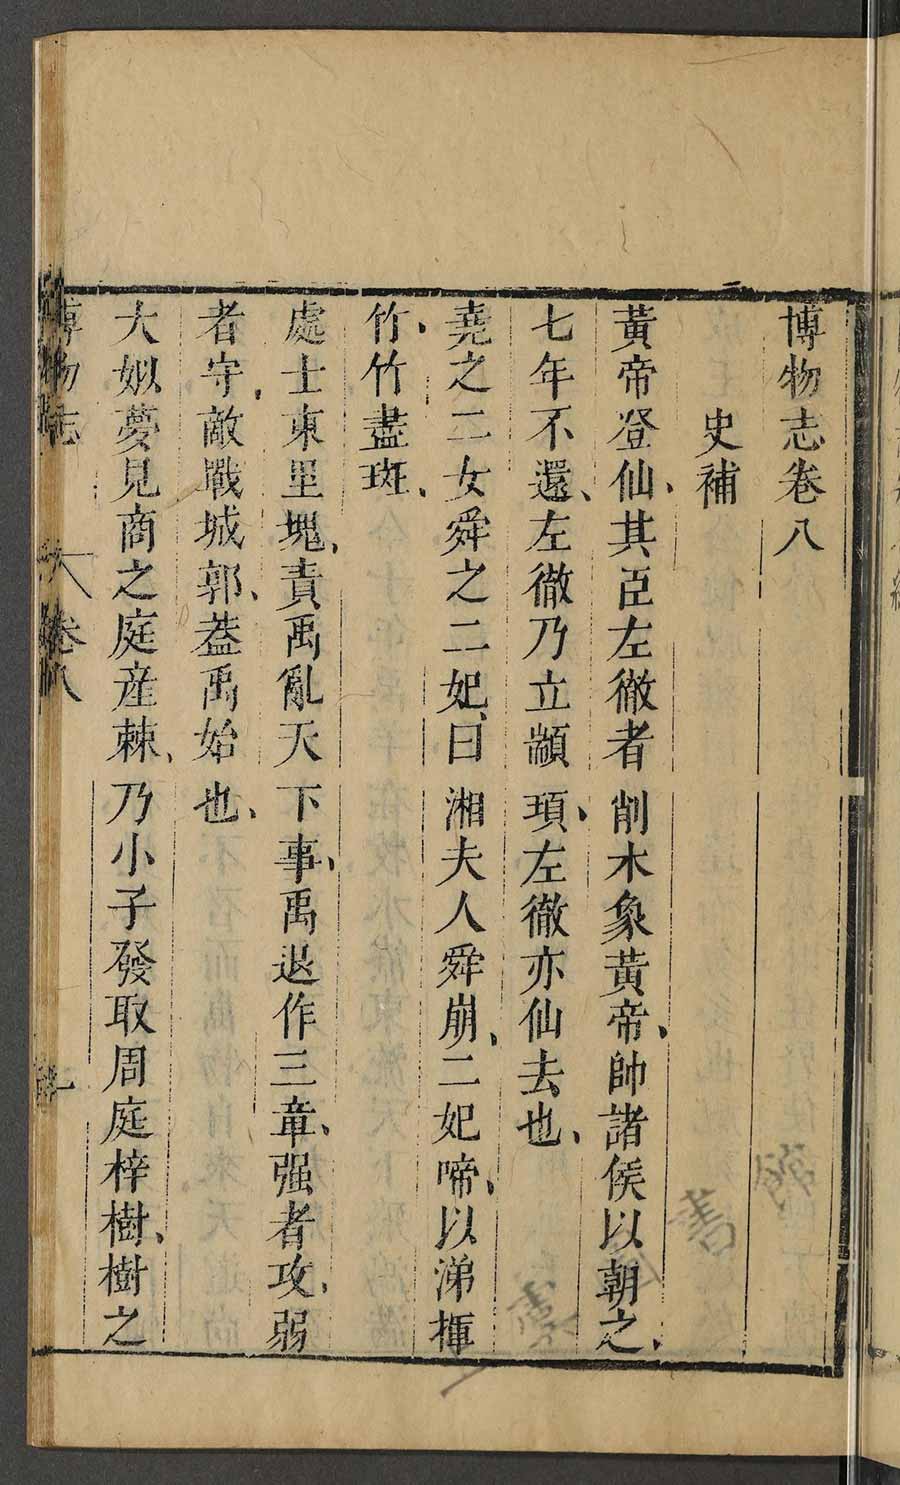 博物志卷八
史補
黃帝登仙、其臣左徹者削木象黃帝、帥諸侯以朝之、
七年不還、左徹乃立顓頊、左徹亦仙去也、
堯之二女舜之二妃、曰湘夫人舜崩、二妃啼、以涕揮
竹、竹盡斑、
處士東里塊、責禹亂天下事、禹退作三章、强者攻、弱
者守、敵戰城郭、葢禹始也、
大姒夢見商之庭産棘、乃小子發取周庭梓樹、樹之
博物志
卷八
一